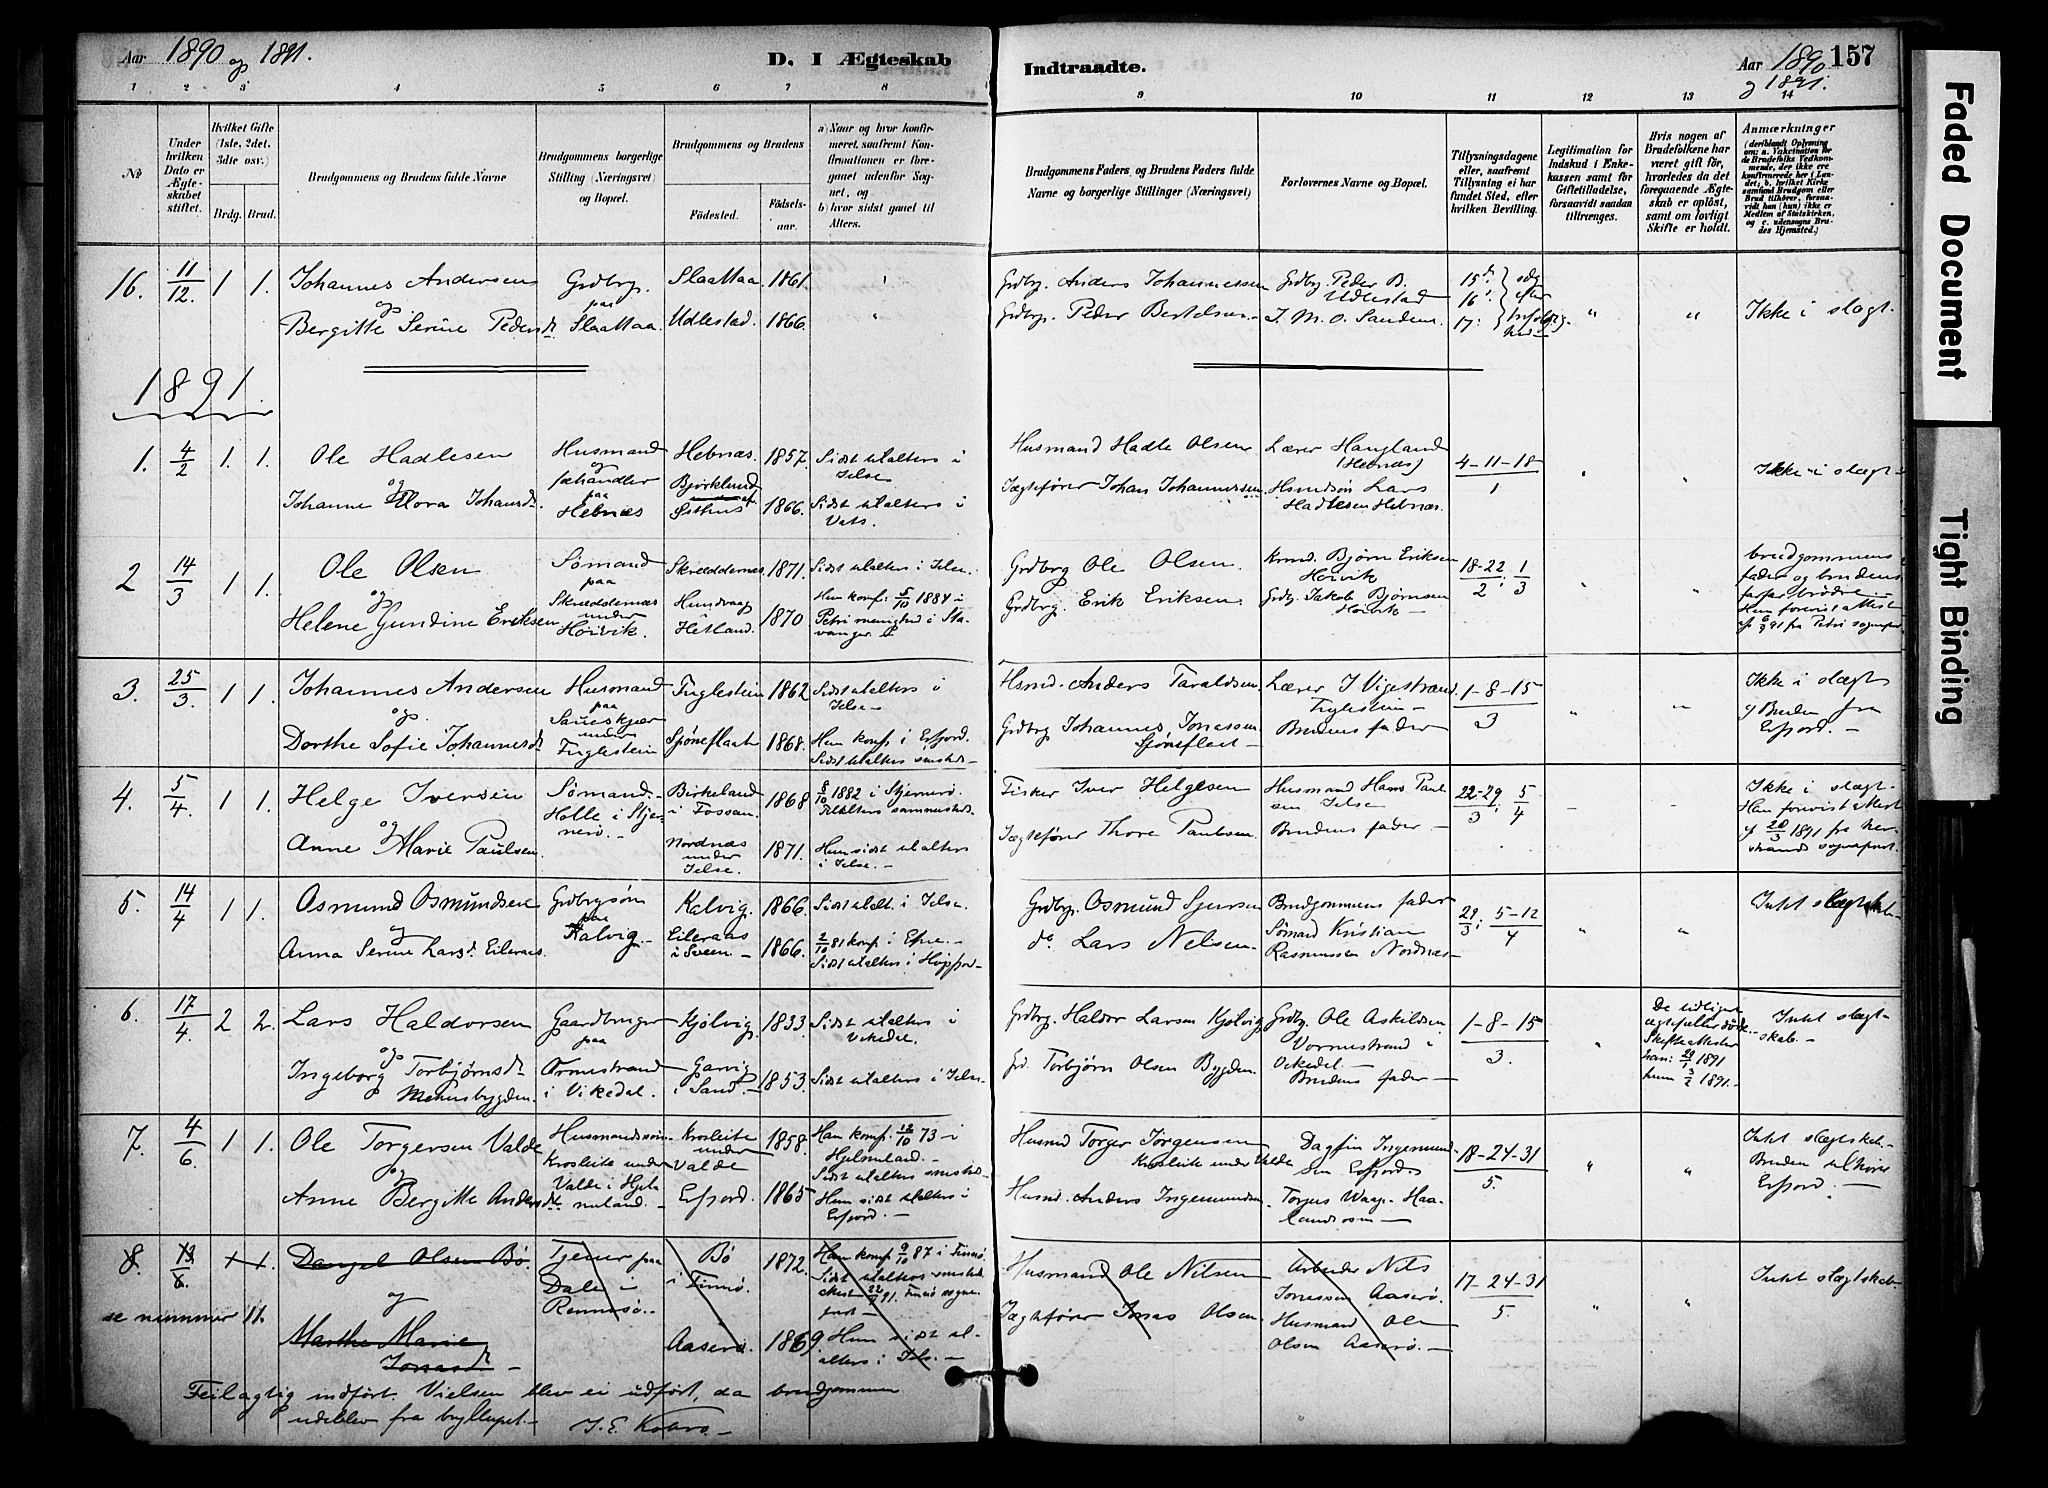 Aar 1890 og 1891.
D. I Ægteskab
Indtraadte.
Aar 1890 og 1891.
157
1 2 3 4 5 6 7 8 9 10 11 12 13 14
No
Under hvilken Dato er Ægteskabet stiftet.
Hvilket Gifte (1ste, 2det, 3die osv.)
Brdg. Brud.
Brudgommens og Brudens fulde Navne
Brudgommens borgerlige Stilling (Næringsvei) og Bopæl.
Brudgommens og Brudens
Fødested.
Fødselsaar.
a) Naar og hvor konfirmeret, saafremt Konfirmationen er foregaaet udenfor Sognet, og
b) hvor sidst gaaet til Alters.
Brudgommens Faders, og Brudens Faders fulde Navne og borgerlige Stillinger (Næringsvei)
Forlovernes Navne og Bopæl.
Tillysningsdagene eller, saafremt Tillysning ei har fundet Sted, efter hvilken Bevilling.
Legitimation for Indskud i Enkekassen samt for Giftetilladelse, forsaavidt saadan tiltrænges.
Hvis nogen af Brudefolkene har været gift før, hvorledes da det foregaaende Ægteskab er opløst, samt om lovligt Skifte er holdt.
Anmærkninger
(deriblandt Oplysning om: a. Vakcination for de Brudefolks Vedkommende, der ikke ere konfirmerede her i Landet; b. hvilket Kirkesamfund Brudgom eller Brud tilhører, forsaavidt han (hun) ikke er Medlem af Statskirken, og c. udensogns Brudes Hjemsted.)
16. 11/12. 1 1. Johannes Andersen og Bergitte Serine Pedersdt.
Grdbrg. paa Slaattaa.
Slaattaa 1861.
Udlestad. 1866.
Grdbrg. Anders Johannessen
Grdbrg. Peder Bertelsen
Grdbrg. Peder B. Udlestad
J. M. O. Sandens
15de 16. 17.
Ikke i slægt.
1891.
1. 4/2 1. 1. Ole Hadlesen og Johanne Flora Johansdt.
Husmand og paa Hebnæs
Hebnæs. 1857.
Bjørklund 1866.
Sidst tilalters i Jelse
Sidst tilalters i Vats.
Husmand Hadle Olsen
Jægtefører Johan Johannessen
Lærer Haugland (Hebnæs)
Lars Hadlesen Hebnæs.
4-11-18/1
Ikke i slægt
2 14/3 1 1. Ole Olsen og Helene Gundine Eriksen
Sømand paa Skreddernæs under Høivik.
Skreddernæs. 1871.
Hundvaag Hetland. 1870
Sidst tilalters i Jelse.
Hun konf. 5/10 1884 i Petri menighed i Stavanger
Grdbrg Ole Olsen.
Grdbrg. Erik Eriksen.
Bjørn Eriksen Høivik
Grdbrg. Jakob Bjørnsen Høivik
18-22/2 : 1/3
brudgommens fader og brudens farfar brødre
Hun forevist attest
fra Petri
3. 25/3. 1 1. Johannes Andersen og Dorthe Sofie Johannesdt
Husmand paa Saueskjær under Fuglestein
Fuglestein 1862
Sjøneflaat 1868.
Sidst tilalters i Jelse
Hun konf. i Erfjord. Sidst tilalters smsteds
Hsmd. Anders Taraldsen.
Grdbrg. Johannes Jonassen Sjøneflaat
Lærer J Vigestrand. Fuglestein
Brudens fader
1-8-15/3
Ikke i slægt
Bruden fra Erfjord.
4. 5/4 1 1. Helge Iversen og Anne Marie Paulsen.
Sømand. Holle i Stjernerø.
Birkeland i Fossan. 1868
Nordnæs under Jelse. 1871.
5/10 1882 i Stjernerø. Tilalters sammesteds.
Hun sidst tilalters i Jelse.
Fisker Iver Helgesen
Jægtefører Thore Paulsen.
Husmand Hans Paulsen Jelse
Brudens fader
22-29/3. 5/4
Ikke i slægt. Han forevist attest
5. 14/4 1 1. Osmund Osmundsen og Anna Serine Larsdt. Eileraas
Grdbrgsøn paa Kalvig.
Kalvig. 1866.
Eileraas i Sveen 1866.
Sidst tilalt. i Jelse.
81 konf. i
Sidst tilalters i
Grdbrg. Osmund Sjursen
do. Lars Nelsen.
Brudgommens fader
Sømand Kristian Rasmussen Nordnæs
29/3 : 5-12/4
Intet slægtskab.
6. 17/4 2 2. Lars Haldorsen og Ingeborg Torbjørnsdt
Gaardbruger paa Ormestrand i Vikedal.
Kjølvig. 1833.
Garvig i Sand. 1853.
Sidst tilalters i Vikedal.
Sidst tilalters i Jelse.
Grdbrg. Haldor Larsen Kjølvig
Torbjørn Olsen Bygden.
Grdbg. Ole Askildsen Vormestrand Vikedal.
Brudens fader
1-8-15/3.
De tidligere ægtefeller døde.
Skifteattester han: 1891 hun 3/2 1891.
Intet slægtskab.
7. 4/6. 1 1. Ole Torgersen Valde og Anne Bergitte Andersdt
Husmandssøn Krosleite under Valde i Hjelmeland.
Krosleite under Valde 1858.
Erfjord. 1865
Han konf. 12/10 73 i Hjelmeland. Sidst tilalters smsteds
Hun sidst tilalters i Erfjord.
Husmd Torger Jørgensen Krosleite under Valde
Husmd. Anders Ingemundsen
Dagfin Ingemundsen Erfjord
18-24-31/5.
Intet slægtskab. Bruden tilhører Erfjord.
8. 13/6. 1 1. Danjel Olsen Bø. og Marthe Marie Jonasdt
se nummer 11.
Tjener paa Dale i Rennesø.
Bø i Finnø. 1872.
Aaserø. 1869.
Han konf. 9/10 87 i Finnø. Sidst tilalters smsteds
Hun sidst tilalters i Jelse.
Husmand Ole Nilsen
Jægtefører Jonas Olsen.
Arbeider Nils Jonassen Aaserø.
Husmand Ole Olsen Aaserø.
17-24-31/5.
Intet slægtskab
Feilagtig indført. Vielsen blev ei udført, da brudgommen
udeblev fra bryllupet.
Faded Document
Tight Binding